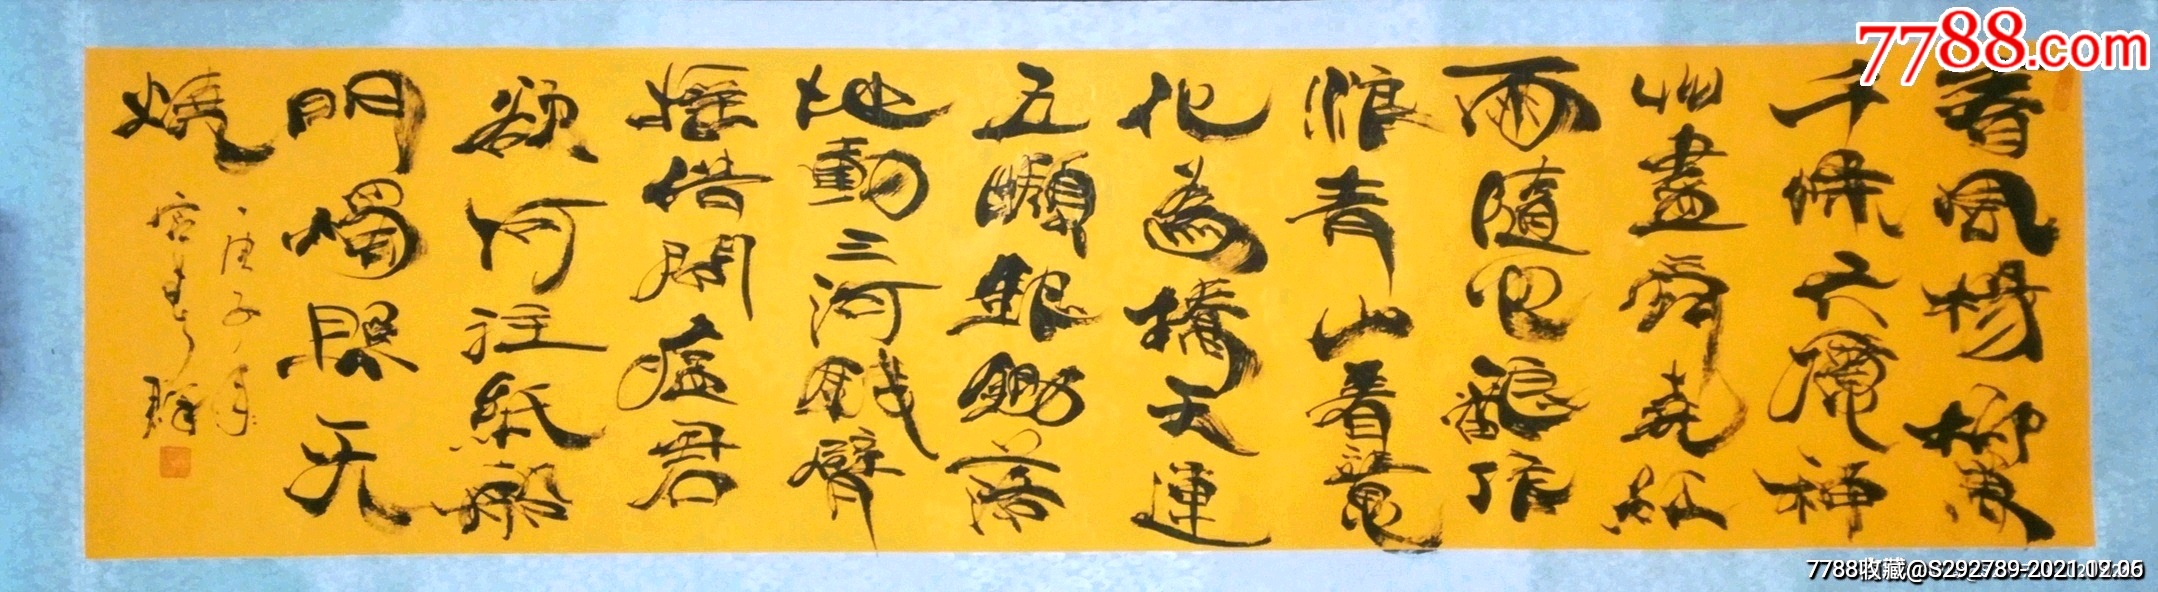 春風楊柳萬
千條六億神
州盡舜堯紅
雨隨心翻作
浪青山着意
化為橋天連
五嶺銀鋤落
地動三河鐵臂
搖借問瘟君
欲何往紙船
明燭照天
燒
庚子年
7788.com
7788收藏@S292789-2021.12.06